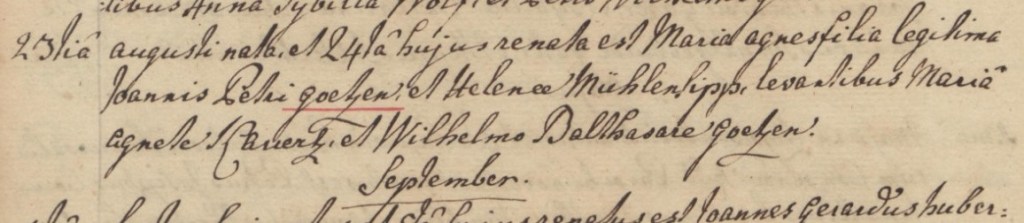 tibus Anna Sybilla Wolff et
23tiâ augusti nata, et 24tâ hujus renata est Maria agnes filia legitima
Joannis Petri goetzen, et Helenæ Mühlensipp, levantibus Mariâ
agnete et Wilhelmo Balthasare goetzen.
September.
renatus est Joannes Gerardus huber=